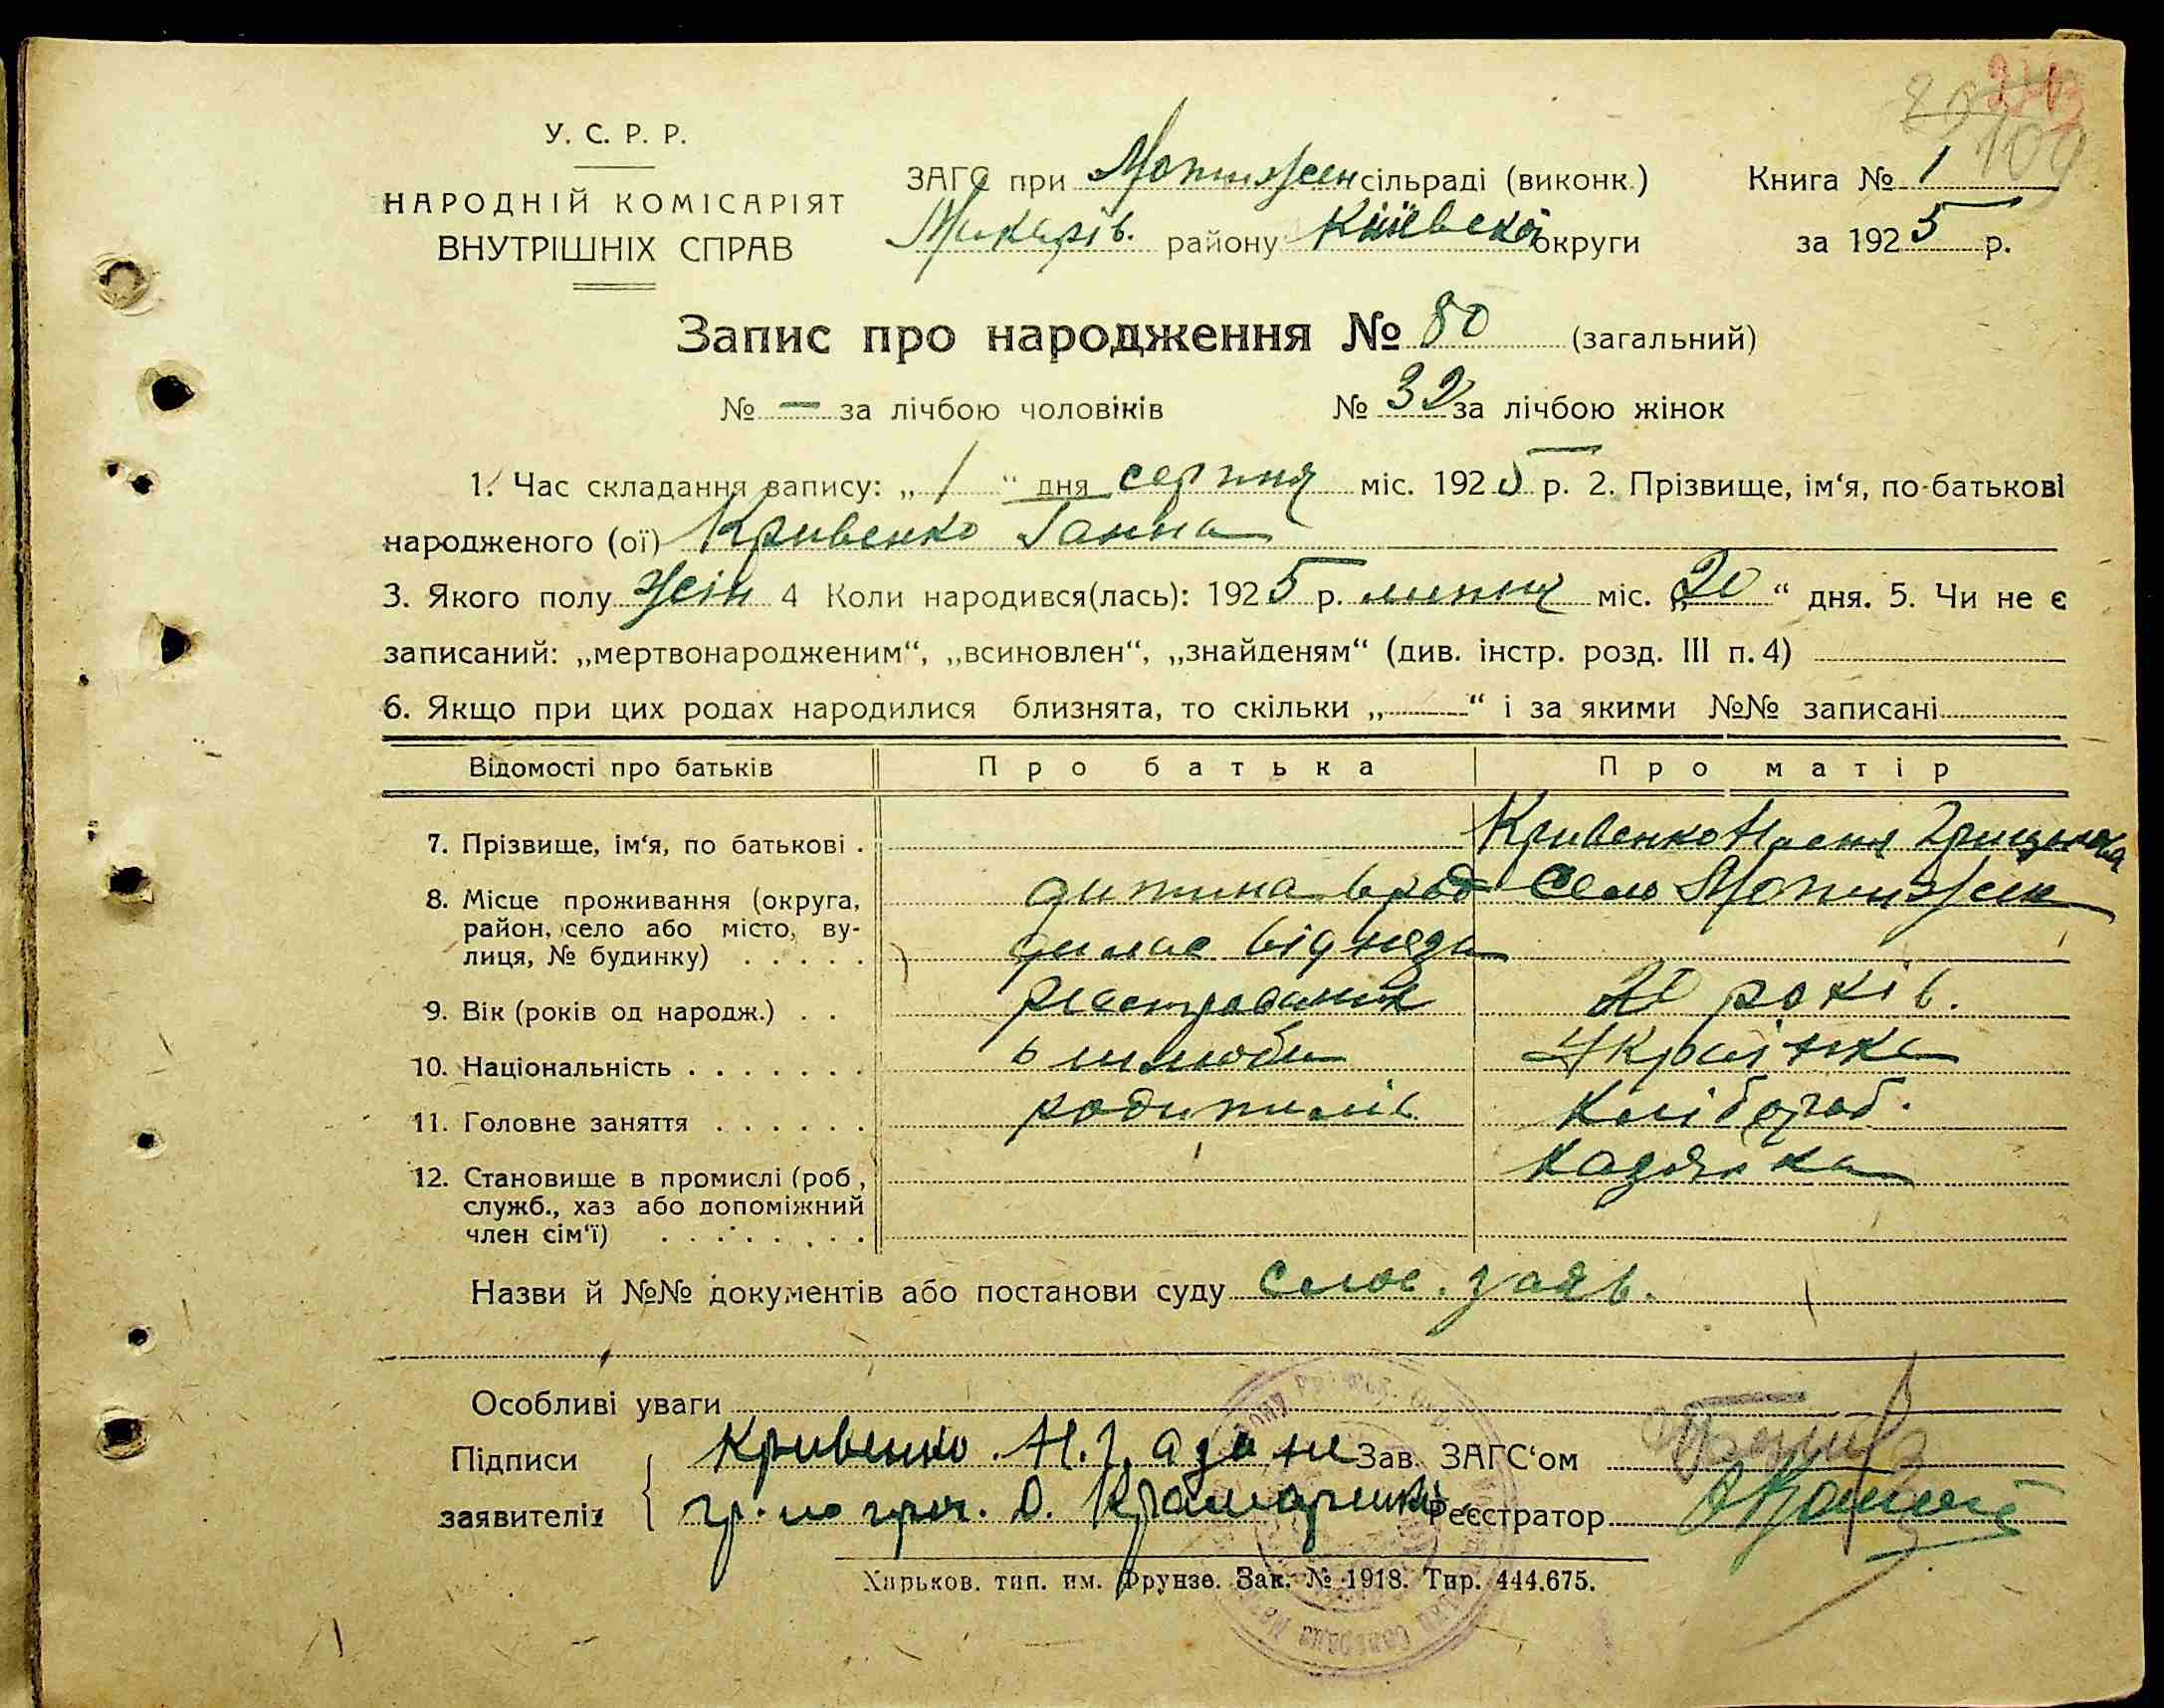 У. С. Р. Р.
НАРОДНІЙ КОМІСАРІЯТ
ВНУТРІШНІХ СПРАВ
ЗАГС при Мотижен сільраді (виконк.)
Макарів. району Київської округи
Книга № 1
за 1925 р.
109
Запис про народження № 80 (загальний)
№ — за лічбою чоловіків № 32 за лічбою жінок
1. Час складання запису: „ 1 “ дня серпня міс. 1925 р. 2. Прізвище, ім‘я, по-батькові
народженого (ої) Кривенко Ганна
3. Якого полу жін 4 Коли народився(лась): 1925 р. липня міс. „20“ дня. 5. Чи не є
записаний: „мертвонародженим“, „всиновлен“, „знайденям“ (див. інстр. розд. III п. 4)
6. Якщо при цих родах народилися близнята, то скільки „ “ і за якими №№ записані
Відомості про батьків Про батька Про матір
7. Прізвище, ім‘я, по батькові . Кривенко Настя
8. Місце проживання (округа, дитина Село Мотижен
район, село або місто, ву-
лиця, № будинку) . . . . . від
9. Вік (років од народж.) . . 20 років.
10. Національність . . . . . . . Українка
11. Головне заняття . . . . . . Хлібороб.
12. Становище в промислі (роб., хазяйка
служб., хаз або допоміжний
член сім‘ї) . . . . . . . .
Назви й №№ документів або постанови суду слов. заяв.
Особливі уваги
Підписи Кривенко Н. Г. а за не Зав. ЗАГС‘ом
заявителів гр. Реєстратор
Харьков. тип. им. Фрунзе. Зак. № 1918. Тир. 444.675.